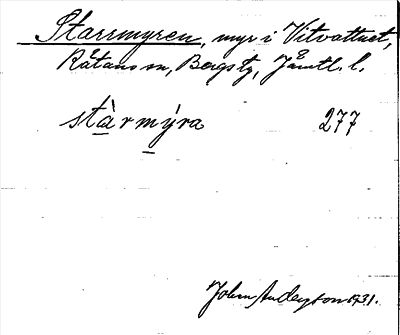 Starrmyren, myr i Vitvattnet,
Rätans sn, Bergs tg, Jämtl. l.
stàrmýra 277
John Anderson 1931.